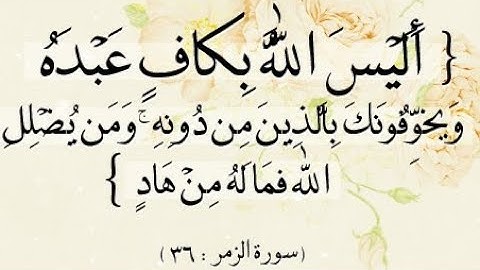 { أَلَيْسَ اللَّهُ بِكَافٍ عَبْدَهُ
وَيُخَوِّفُونَكَ بِالَّذِينَ مِن دُونِهِ ۚ وَمَن يُضْلِلِ
اللَّهُ فَمَا لَهُ مِنْ هَادٍ }
(سورة الزمر : ٣٦)